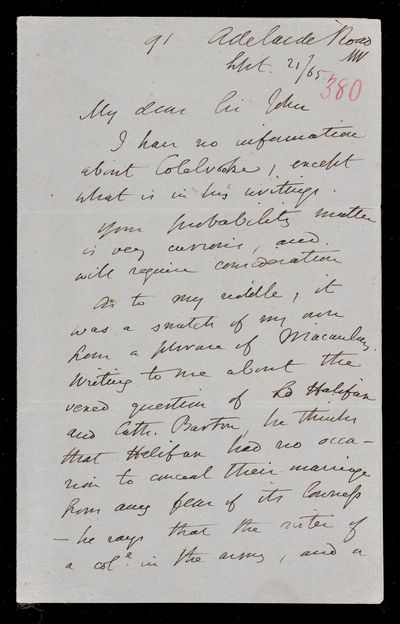 91 Adelaide Road
NW
Sept. 21/65
380
My dear Sir John
I have no information
about Colebrooke, except
what is in his writings.
Your probability matter
is very curious, and
will require consideration
As to my riddle, it
was a snatch of my own
from a phrase of Macaulay.
Writing to me about the
vexed question of Ld Halifax
and Cath. Barton, he thinks
that Halifax had no occa-
sion to conceal their marriage
from any fear of its lowness
- he says that the sister of
a col.^l in the army, and a